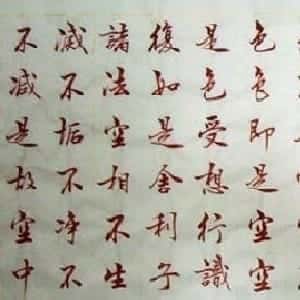 色色即是空空
是色受想行識
復如是舍利子
諸法空相不生
滅不垢不净不
不減是故空中